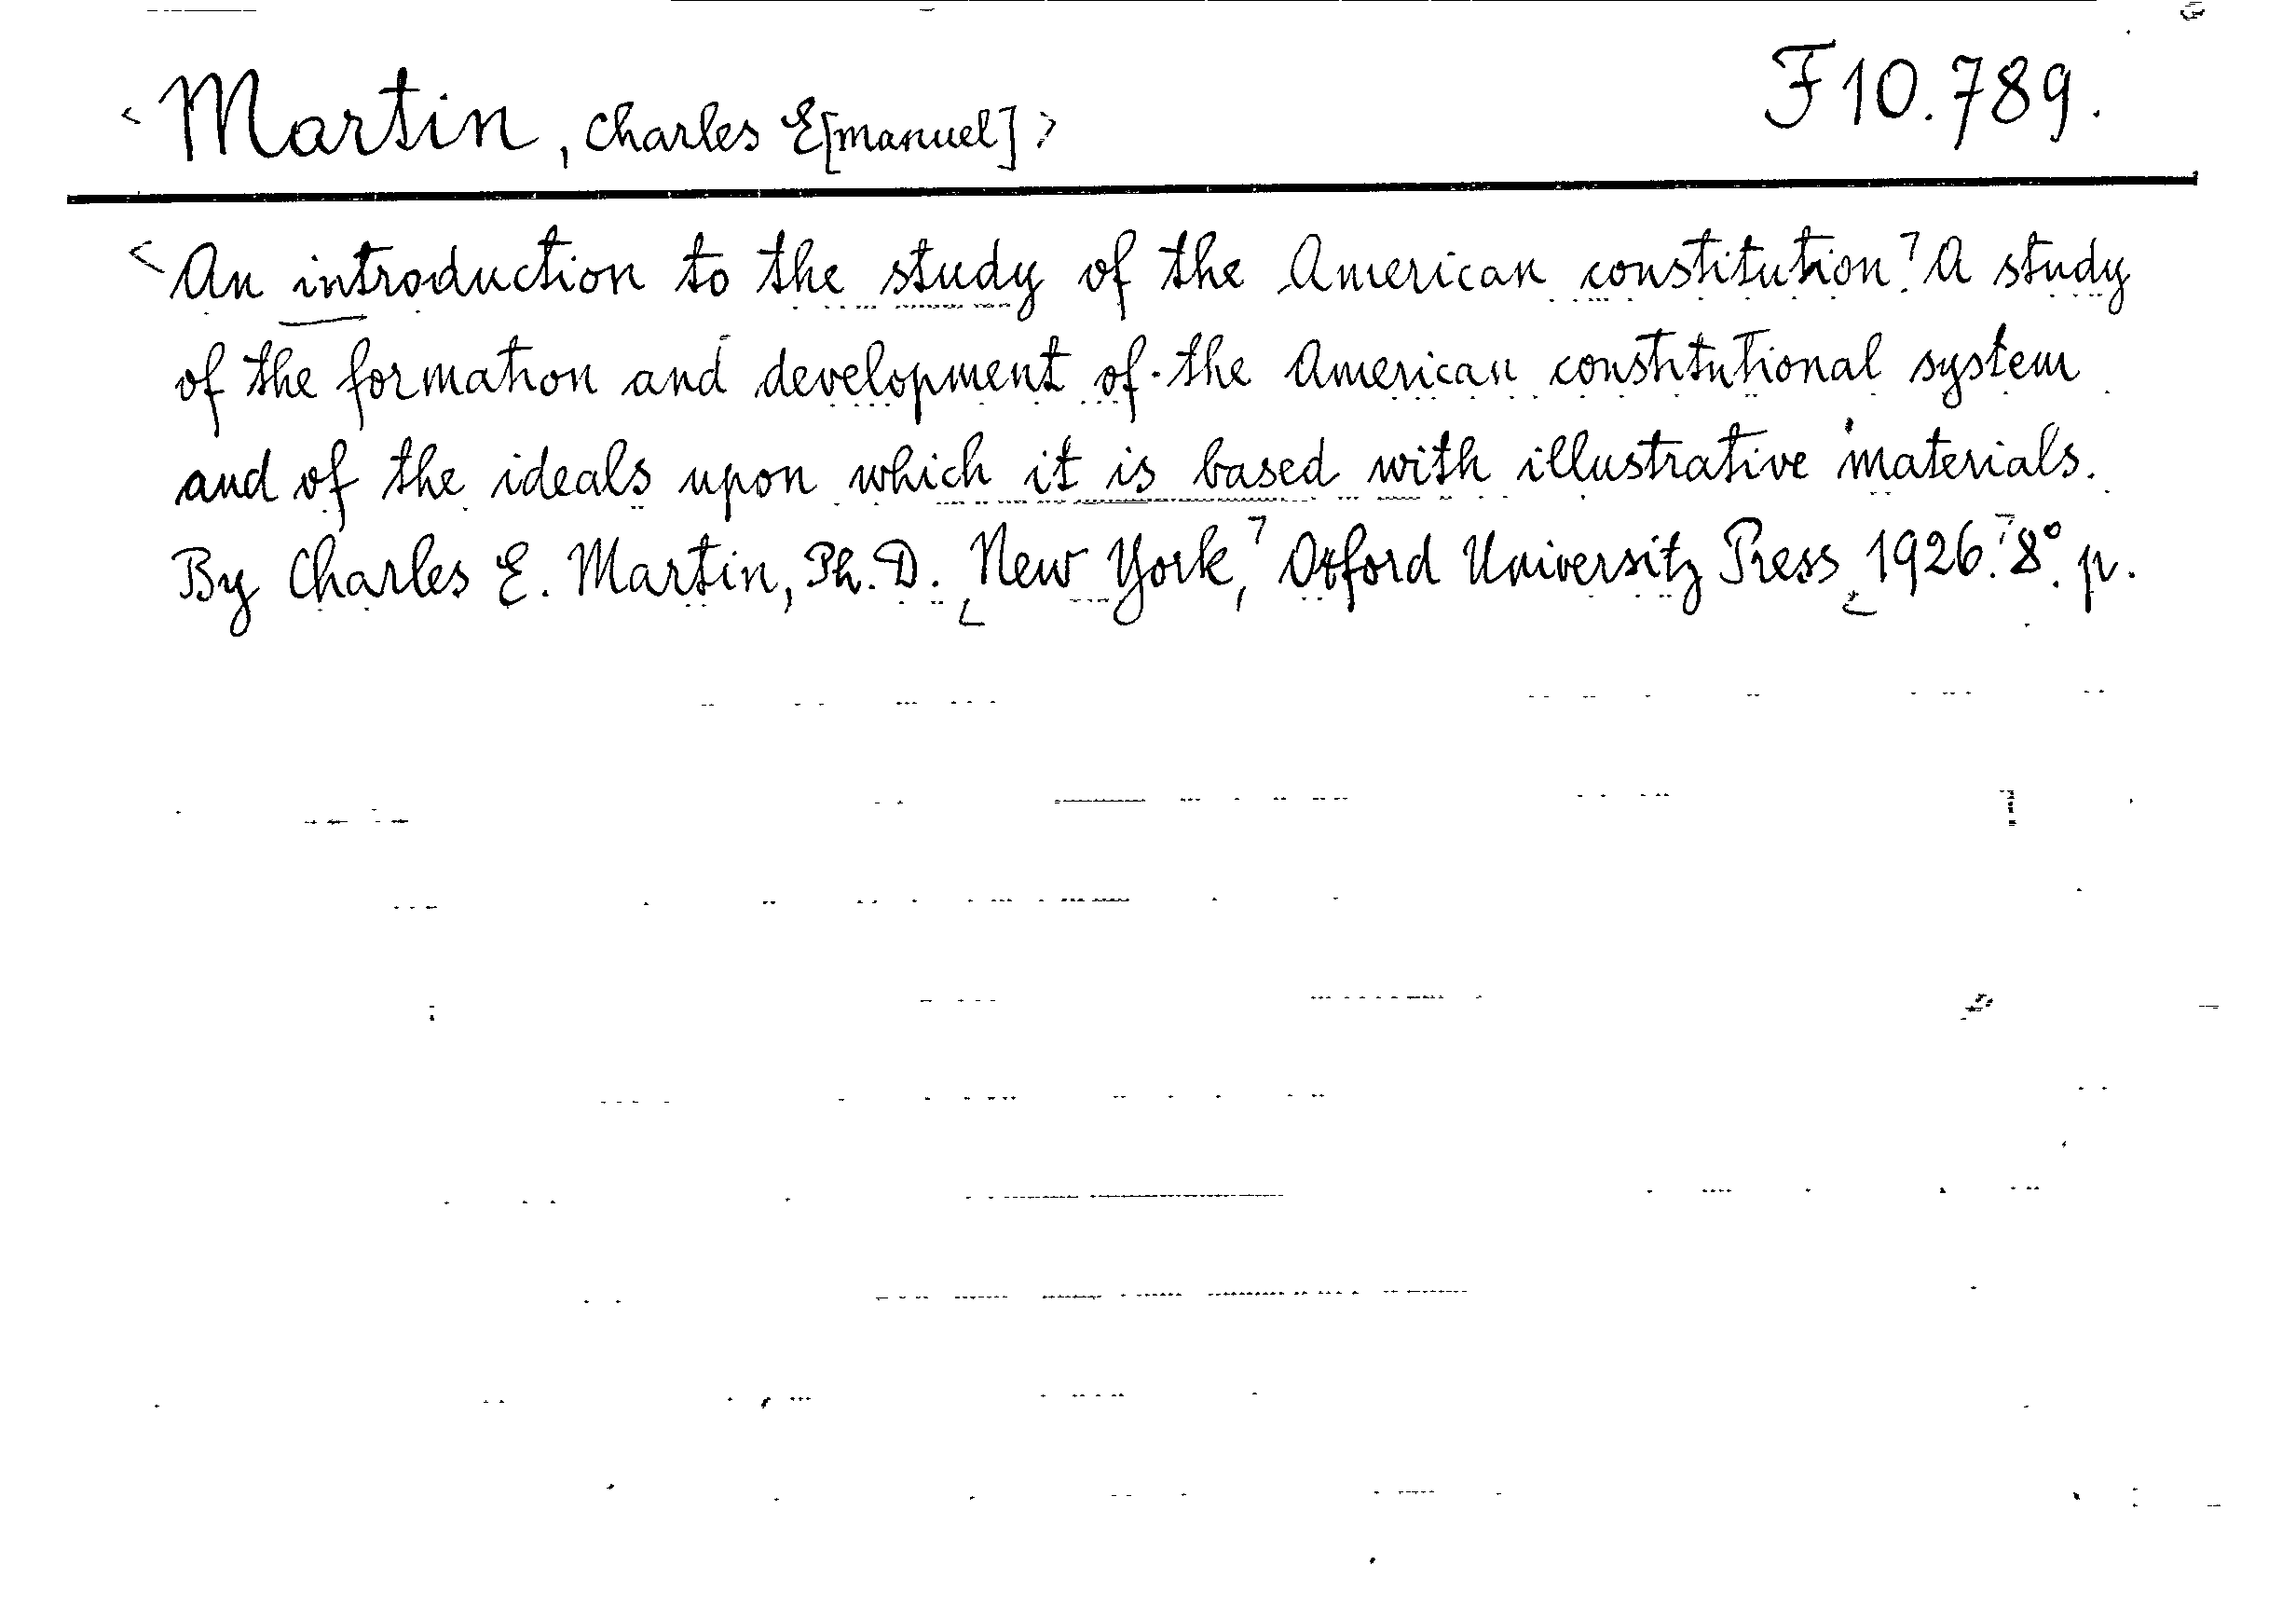 <Martin, Charles E[manuel]> F10.789.
<An introduction to the study of the American constitution.⁊ A study
of the formation and development of the American constitutional system
and of the ideals upon which it is based with illustrative materials.
By Charles E. Martin, Ph. D. New York,⁊ Oxford University Press, 1926.⁊ 8° p.